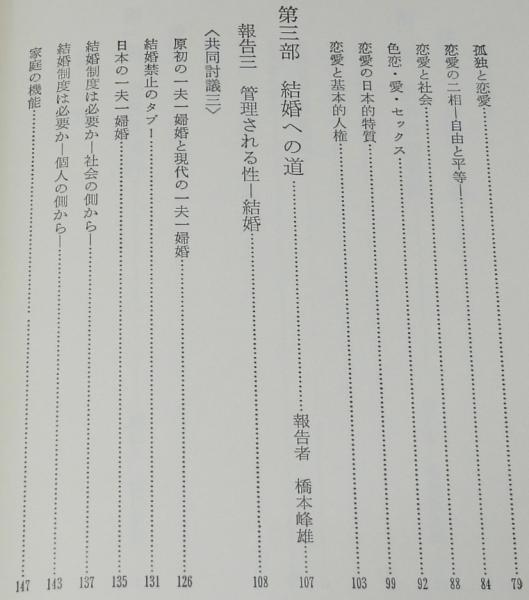 孤独と恋愛……………79
恋愛の二相―自由と平等―……………84
恋愛と社会……………88
色恋・愛・セックス……………92
恋愛の日本的特質……………99
恋愛と基本的人権……………103
第三部 結婚への道……………報告者 橋本峰雄……107
報告三 管理される性―結婚……………108
〈共同討議三〉
原初の一夫一婦婚と現代の一夫一婦婚……………126
結婚禁止のタブー……………131
日本の一夫一婦婚……………135
結婚制度は必要か―社会の側から―……………137
結婚制度は必要か―個人の側から―……………143
家庭の機能……………147